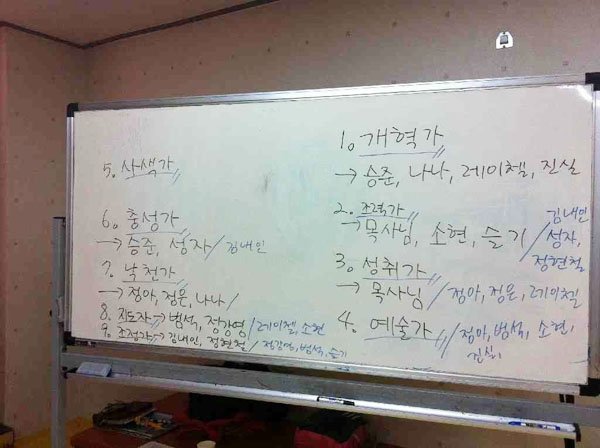 1. 개혁가
→ 승준, 나나, 레이첼, 진실
2. 조력가
→ 목사님, 소현, 슬기 / 김내인
성자,
정현철
3. 성취가
→ 목사님 / 정아, 정은, 레이첼
4. 예술가 / 정아, 범석, 소현,
진실,
5. 사색가
6. 충성가
→ 승준, 성자 / 김내인
7. 낙천가
→ 정아, 정은, 나나 /
8. 지도자 → 범석, 정강영 / 레이첼, 소현
9. 조정가 → 김내인, 정현철 / 정강영, 범석, 슬기